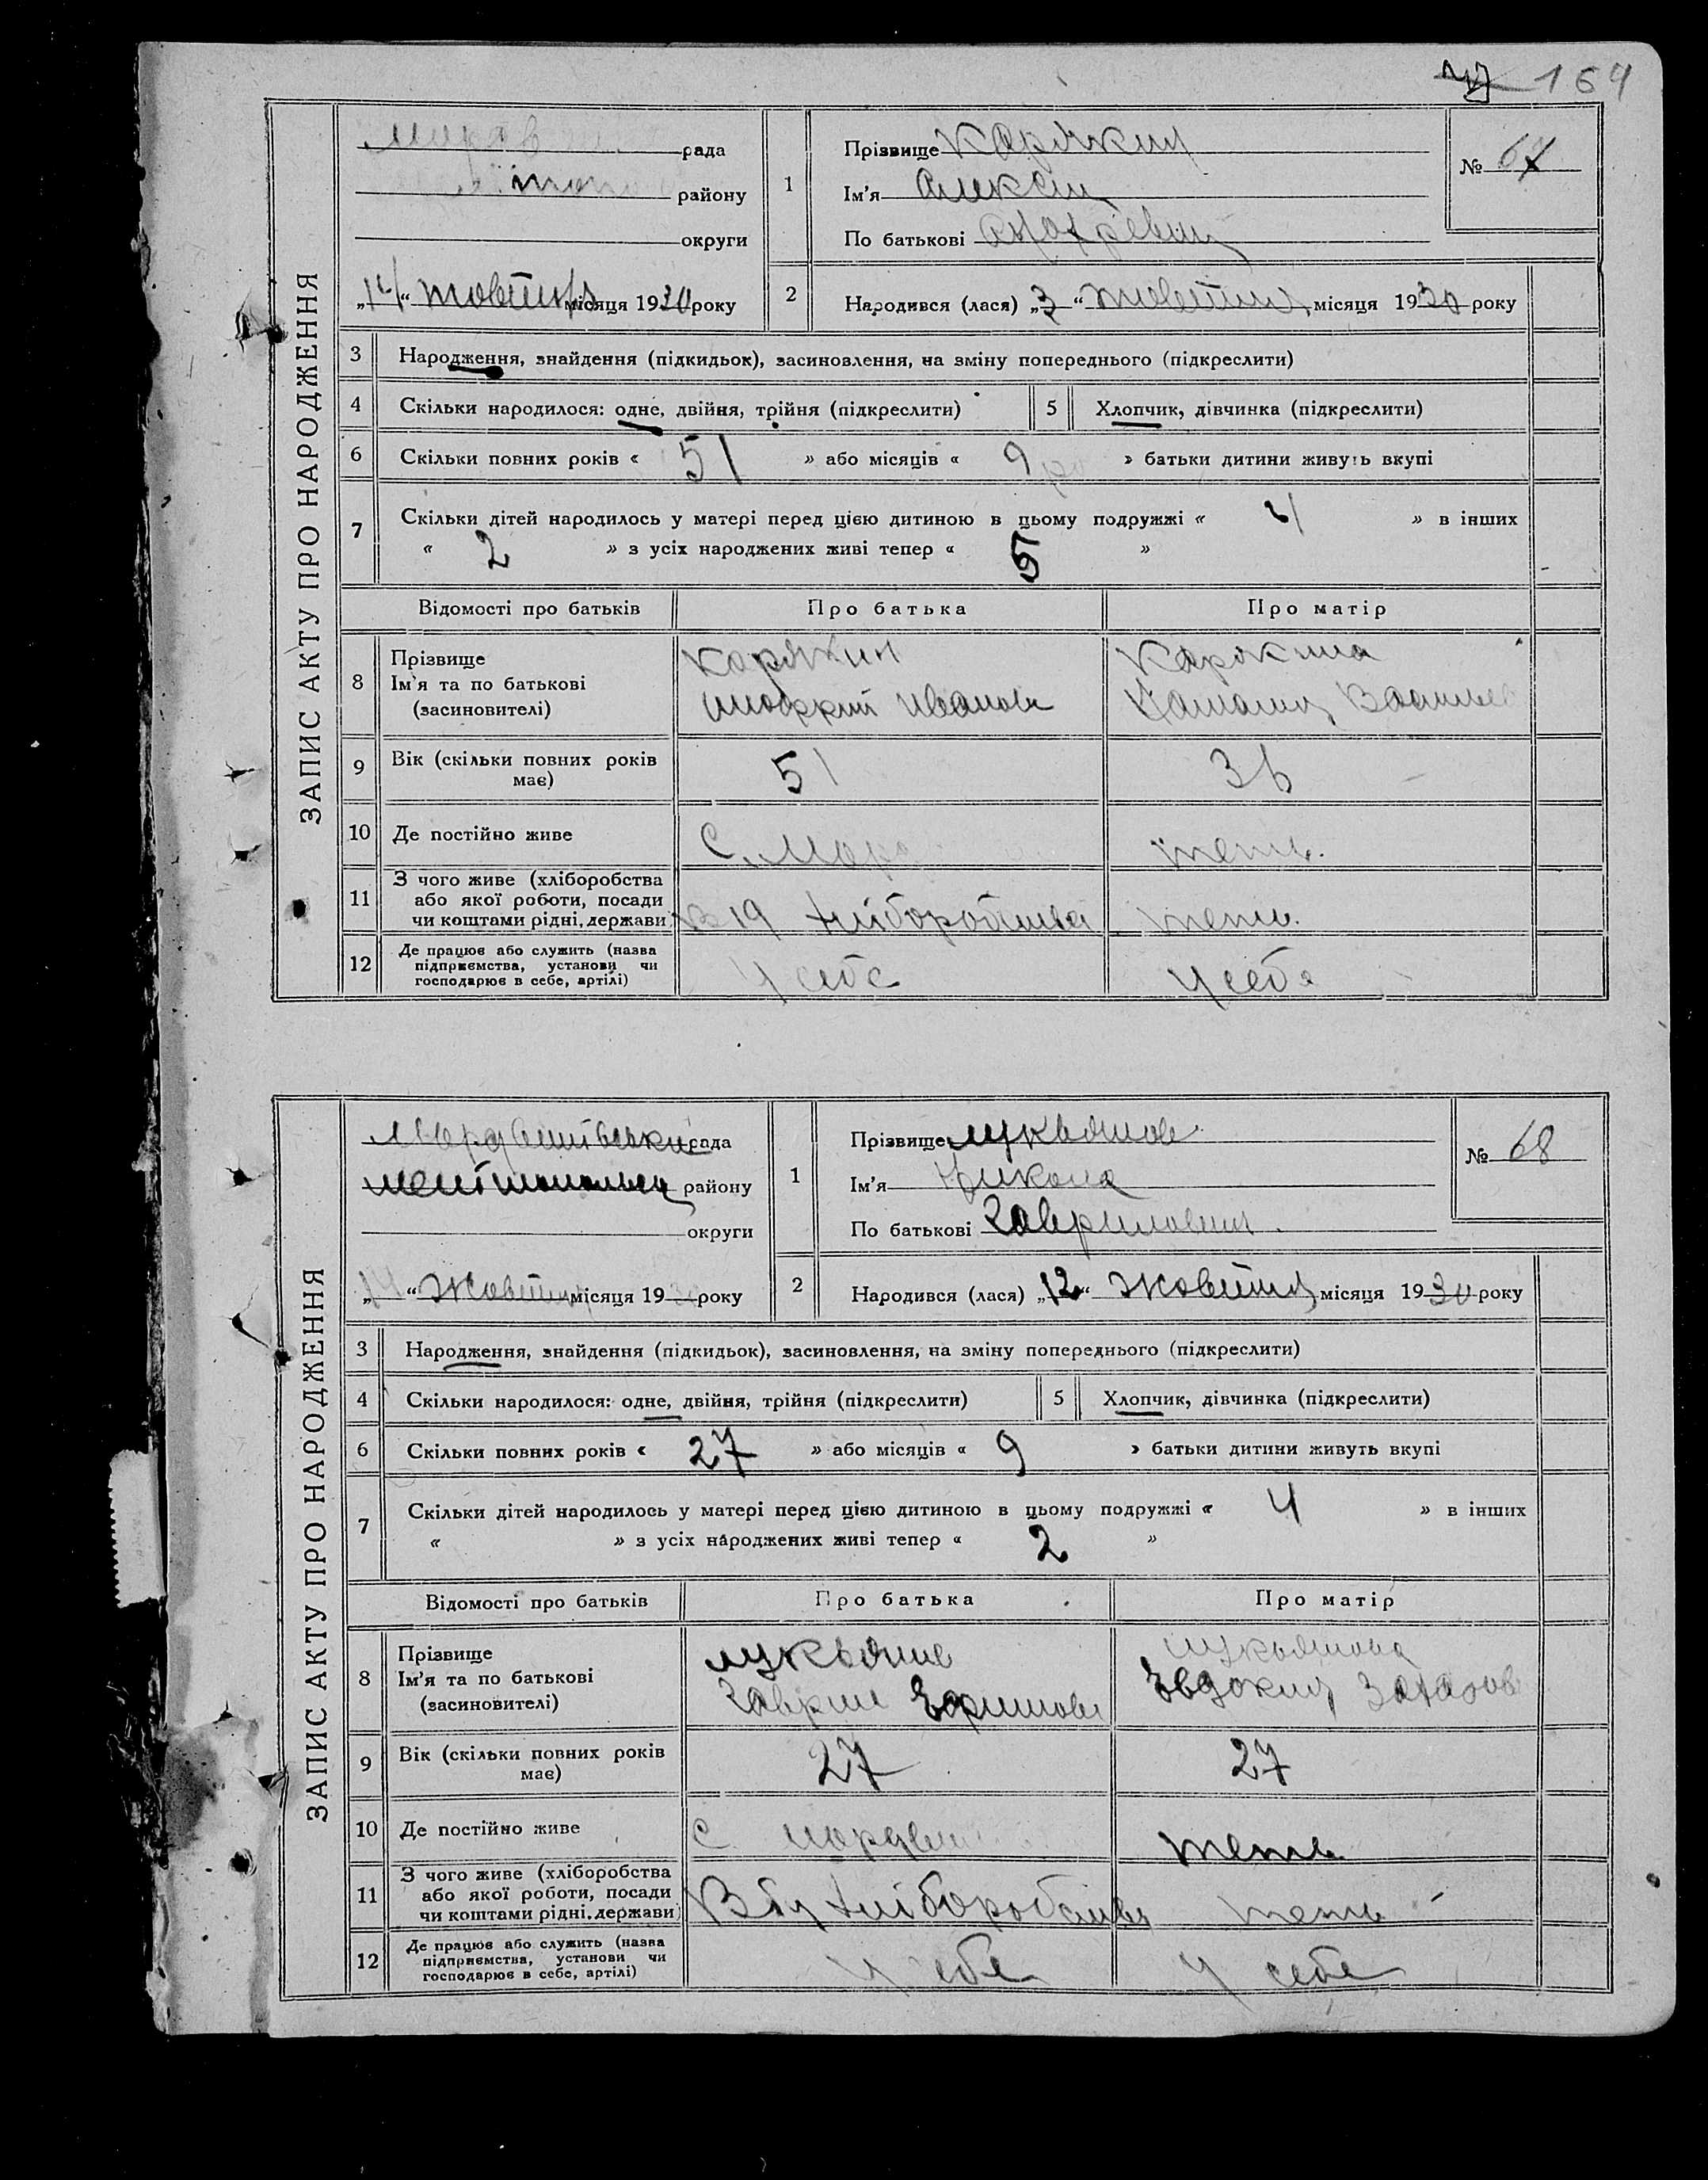 164
ЗАПИС АКТУ ПРО НАРОДЖЕННЯ
рада
району
округи
місяця 1930 року
1
Прізвище Карякин
Ім'я Алексій
По батькові
№ 67
2
Народився (лася) „3“ жовтня місяця 1930 року
3 Народження, знайдення (підкидьок), засиновлення, на зміну попереднього (підкреслити)
4 Скільки народилося: одне, двійня, трійня (підкреслити)
5 Хлопчик, дівчинка (підкреслити)
6 Скільки повних років « 51 » або місяців « 9 » батьки дитини живуть вкупі
7 Скільки дітей народилось у матері перед цією дитиною в цьому подружжі « 4 » в інших
« 2 » з усіх народжених живі тепер « 5 »
Відомості про батьків Про батька Про матір
8 Прізвище Карякин Карякина
Ім'я та по батькові Иванов
(засиновителі)
9 Вік (скільки повних років має) 51 36
10 Де постійно живе С. теж
11 З чого живе (хліборобства
або якої роботи, посади
чи коштами рідні, держави) хліборобства
12 Де працює або служить (назва
підприємства, установи чи
господарює в себе, артілі) У себе У себе
ЗАПИС АКТУ ПРО НАРОДЖЕННЯ
рада
району
округи
„14“ Жовтня місяця 1930 року
1
Прізвище Лукьянов
Ім'я Никола
По батькові Гаврилович
№ 68
2
Народився (лася) „12“ Жовтня місяця 1930 року
3 Народження, знайдення (підкидьок), засиновлення, на зміну попереднього (підкреслити)
4 Скільки народилося: одне, двійня, трійня (підкреслити)
5 Хлопчик, дівчинка (підкреслити)
6 Скільки повних років « 27 » або місяців « 9 » батьки дитини живуть вкупі
7 Скільки дітей народилось у матері перед цією дитиною в цьому подружжі « 4 » в інших
« » з усіх народжених живі тепер « 2 »
Відомості про батьків Про батька Про матір
8 Прізвище Лукьянов Лукьянова
Ім'я та по батькові Гаврил Евдокия
(засиновителі)
9 Вік (скільки повних років має) 27 27
10 Де постійно живе с
11 З чого живе (хліборобства
або якої роботи, посади
чи коштами рідні, держави) хліборобства
12 Де працює або служить (назва
підприємства, установи чи
господарює в себе, артілі) У себе У себе